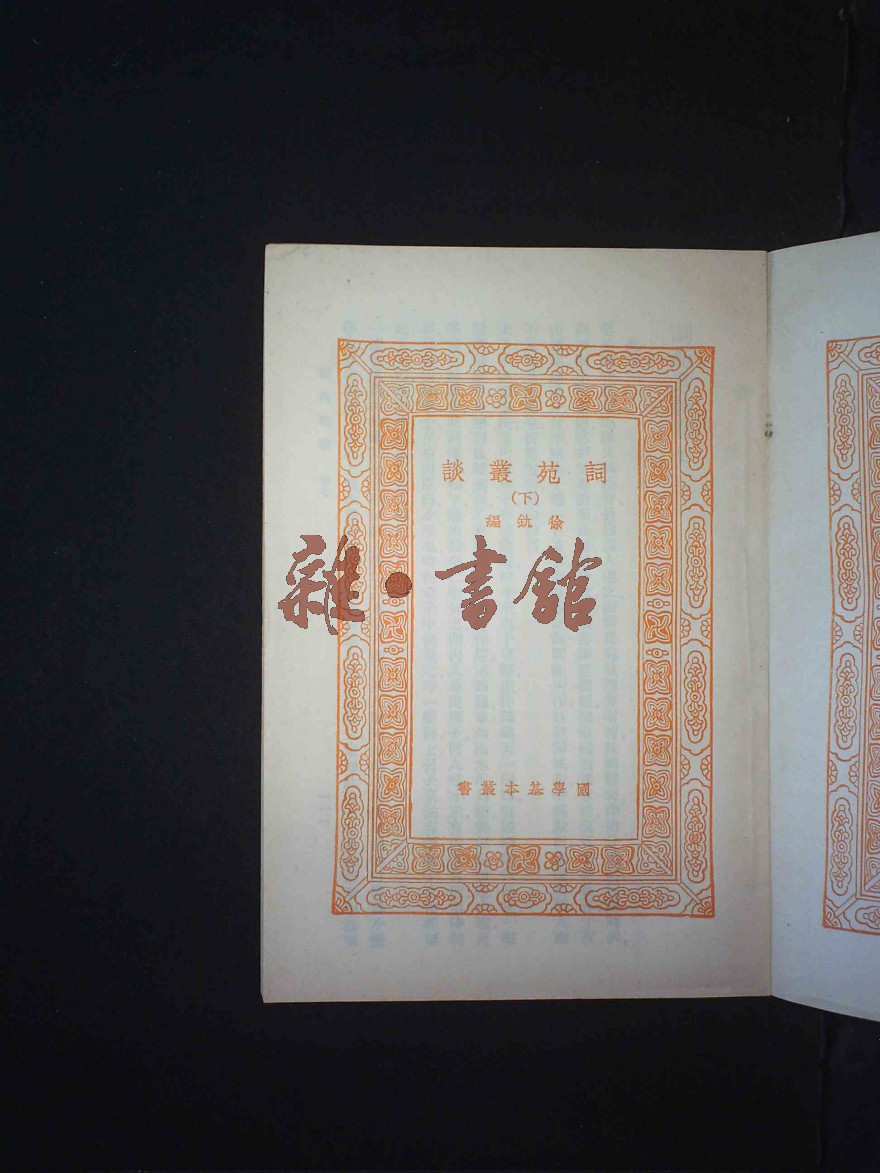 詞苑叢談
(下)
徐釚編
雜·書館
國學基本叢書